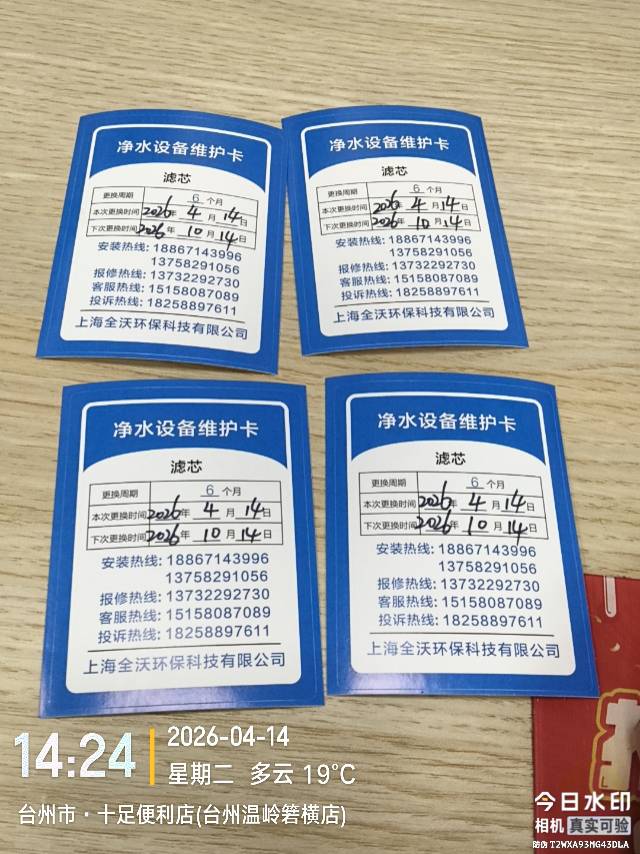 净水设备维护卡
滤芯
更换周期 6 个月
本次更换时间 2026年 4 月 14日
下次更换时间 2026年 10 月 14日
安装热线: 18867143996
13758291056
报修热线: 13732292730
客服热线: 15158087089
投诉热线: 18258897611
上海全沃环保科技有限公司
净水设备维护卡
滤芯
更换周期 6 个月
本次更换时间 2026年 4 月 14日
下次更换时间 2026年 10 月 14日
安装热线: 18867143996
13758291056
报修热线: 13732292730
客服热线: 15158087089
投诉热线: 18258897611
上海全沃环保科技有限公司
净水设备维护卡
滤芯
更换周期 6 个月
本次更换时间 2026年 4 月 14日
下次更换时间 2026年 10 月 14日
安装热线: 18867143996
13758291056
报修热线: 13732292730
客服热线: 15158087089
投诉热线: 18258897611
上海全沃环保科技有限公司
净水设备维护卡
滤芯
更换周期 6 个月
本次更换时间 2026年 4 月 14日
下次更换时间 2026年 10 月 14日
安装热线: 18867143996
13758291056
报修热线: 13732292730
客服热线: 15158087089
投诉热线: 18258897611
上海全沃环保科技有限公司
14:24
2026-04-14
星期二 多云 19°C
台州市·十足便利店(台州温岭箬横店)
今日水印
相机 真实可验
防伪 T2WXA93MG43DLA